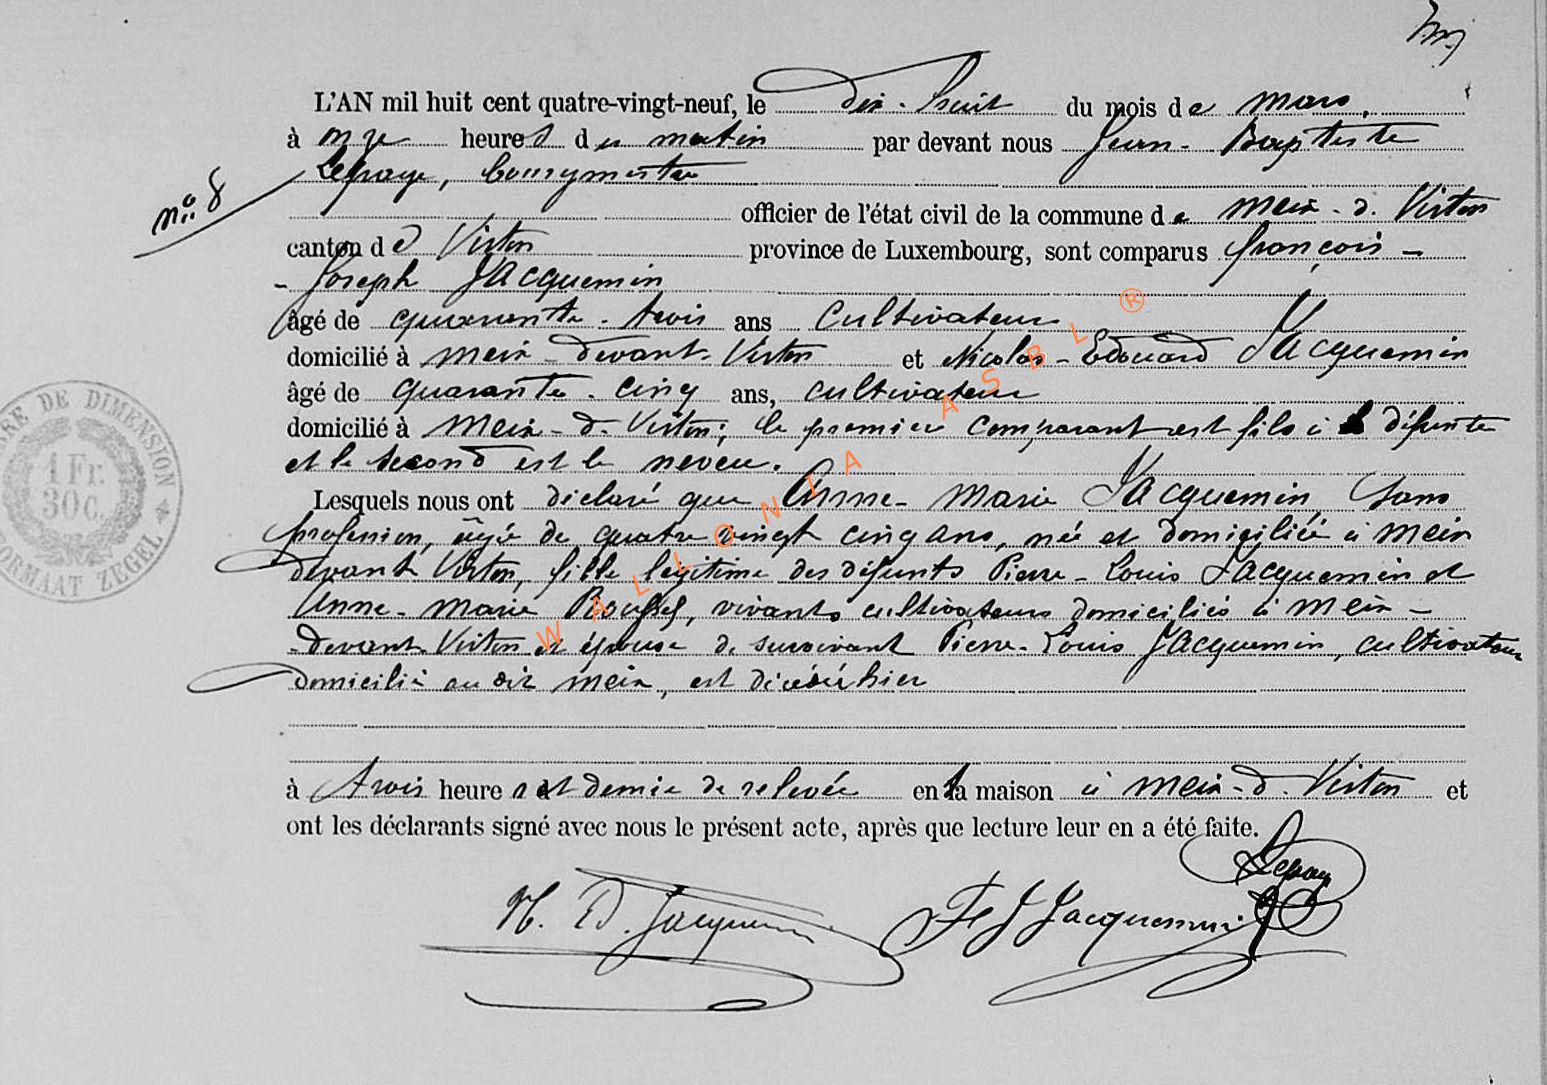 L'AN mil huit cent quatre-vingt-neuf, le dix-huit du mois de mars,
à onze heures du matin par devant nous Jean-Baptiste
Lepage, bourgmestre
n° 8
officier de l'état civil de la commune de Meix-d. Virton
canton de Virton province de Luxembourg, sont comparus françois-
-Joseph Jacquemin
âgé de quarante-trois ans cultivateur
domicilié à Meix-devant-Virton et Nicolas-Edouard Jacquemin
âgé de quarante-cinq ans, cultivateur
domicilié à Meix-d-Virton; le premier comparant est fils à la défunte
et le second est le neveu.
Lesquels nous ont déclaré que Anne-Marie Jacquemin, sans
profession, âgée de quatre vingt cinq ans, née et domiciliée à Meix
devant Virton, fille légitime des défunts Pierre-Louis Jacquemin et
Anne-Marie, vivants cultivateurs domiciliés à Meix-
-devant-Virton et épouse de survivant Pierre-Louis Jacquemin, cultivateur
domicilié au dit Meix, est décédée hier
à trois heures et demie de relevée en sa maison à Meix-d. Virton et
ont les déclarants signé avec nous le présent acte, après que lecture leur en a été faite.
Lepage
N. Ed. Jacquemin Fs J Jacquemin
TIMBRE DE DIMENSION
1 Fr.
30 C.
FORMAAT ZEGEL
WALLONIA ASBL ®